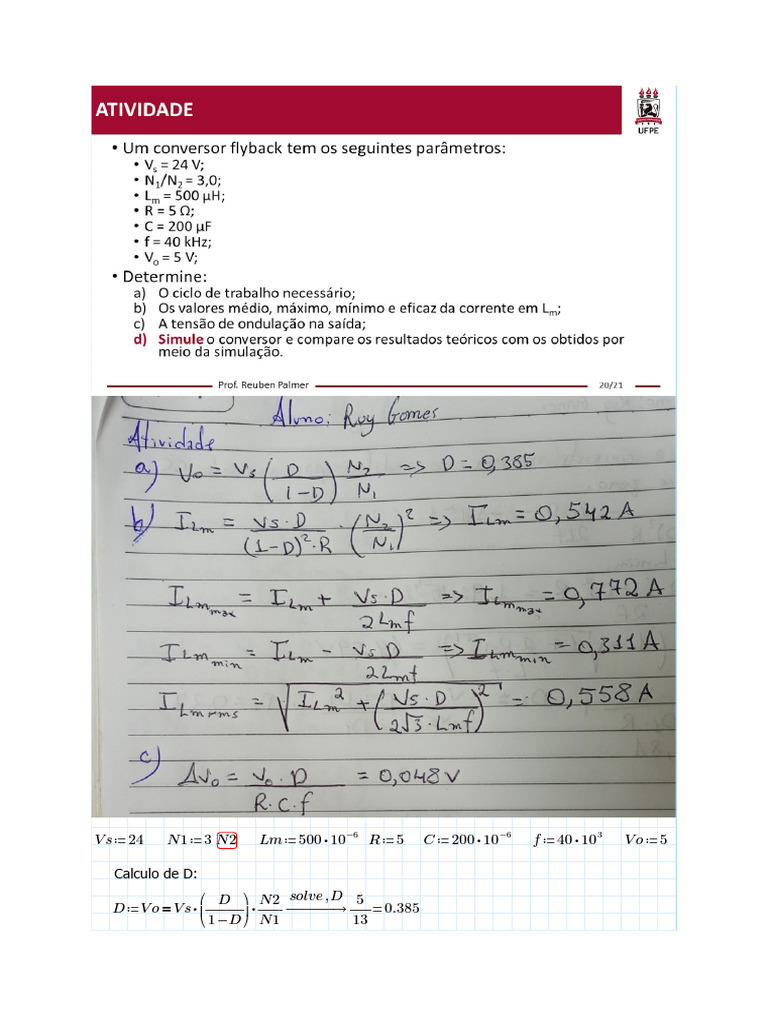 ATIVIDADE
UFPE
• Um conversor flyback tem os seguintes parâmetros:
• Vₛ = 24 V;
• N₁/N₂ = 3,0;
• Lₘ = 500 µH;
• R = 5 Ω;
• C = 200 µF
• f = 40 kHz;
• Vₒ = 5 V;
• Determine:
a) O ciclo de trabalho necessário;
b) Os valores médio, máximo, mínimo e eficaz da corrente em Lₘ;
c) A tensão de ondulação na saída;
d) Simule o conversor e compare os resultados teóricos com os obtidos por
meio da simulação.
Prof. Reuben Palmer 20/21
Aluno: Ruy Gomes
Atividade
a) Vo = Vs (D / (1-D)) N₂/N₁ => D = 0,385
b) I_Lm = Vs·D / ((1-D)²·R) · (N₂/N₁)² => I_Lm = 0,542 A
I_Lm max = I_Lm + Vs·D / (2Lmf) => I_Lm max = 0,772 A
I_Lm min = I_Lm - Vs D / (2Lmf) => I_Lm min = 0,311 A
I_Lm rms = √(I_Lm² + (Vs·D / (2√3·Lmf))²) = 0,558 A
c) ΔVo = Vo·D / (R·C·f) = 0,048 V
Vs:=24 N1:=3 N2 Lm:=500•10⁻⁶ R:=5 C:=200•10⁻⁶ f:=40•10³ Vo:=5
Calculo de D:
D:=Vo=Vs•(D / (1−D))•N2/N1 solve,D → 5/13=0.385